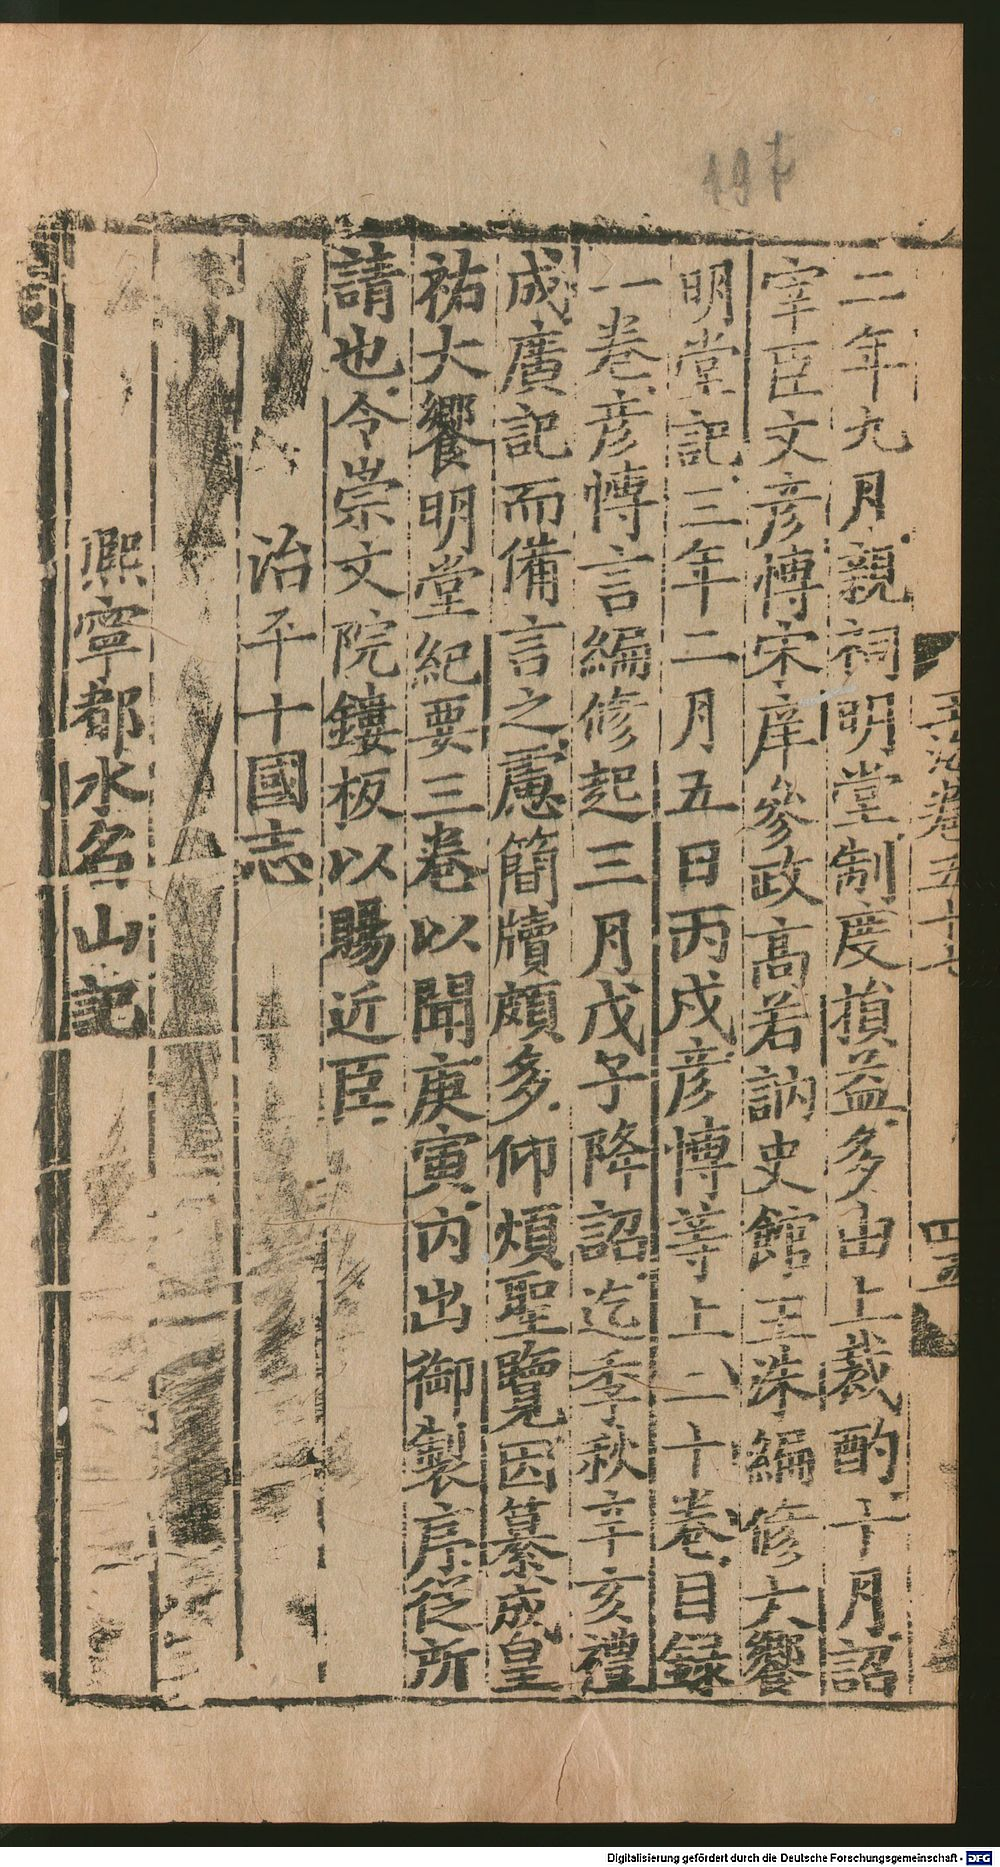 二年九月親祠明堂制度損益多由上裁酌十月詔
宰臣文彦愽宋庠參政高若訥史館王洙編修大饗
明堂記三年二月五日丙戍彦愽等上二十卷目録
一卷彦愽言編修起三月戊子降詔迄季秋辛亥禮
成廣記而備言之慮簡牘頗多仰煩聖覽因纂成皇
祐大饗明堂紀要三卷以聞庚寅内出御製序從所
請也令崇文院鏤板以賜近臣
治平十國志
熈寧都水名山記
卷五十七
四五
Digitalisierung gefördert durch die Deutsche Forschungsgemeinschaft - DFG